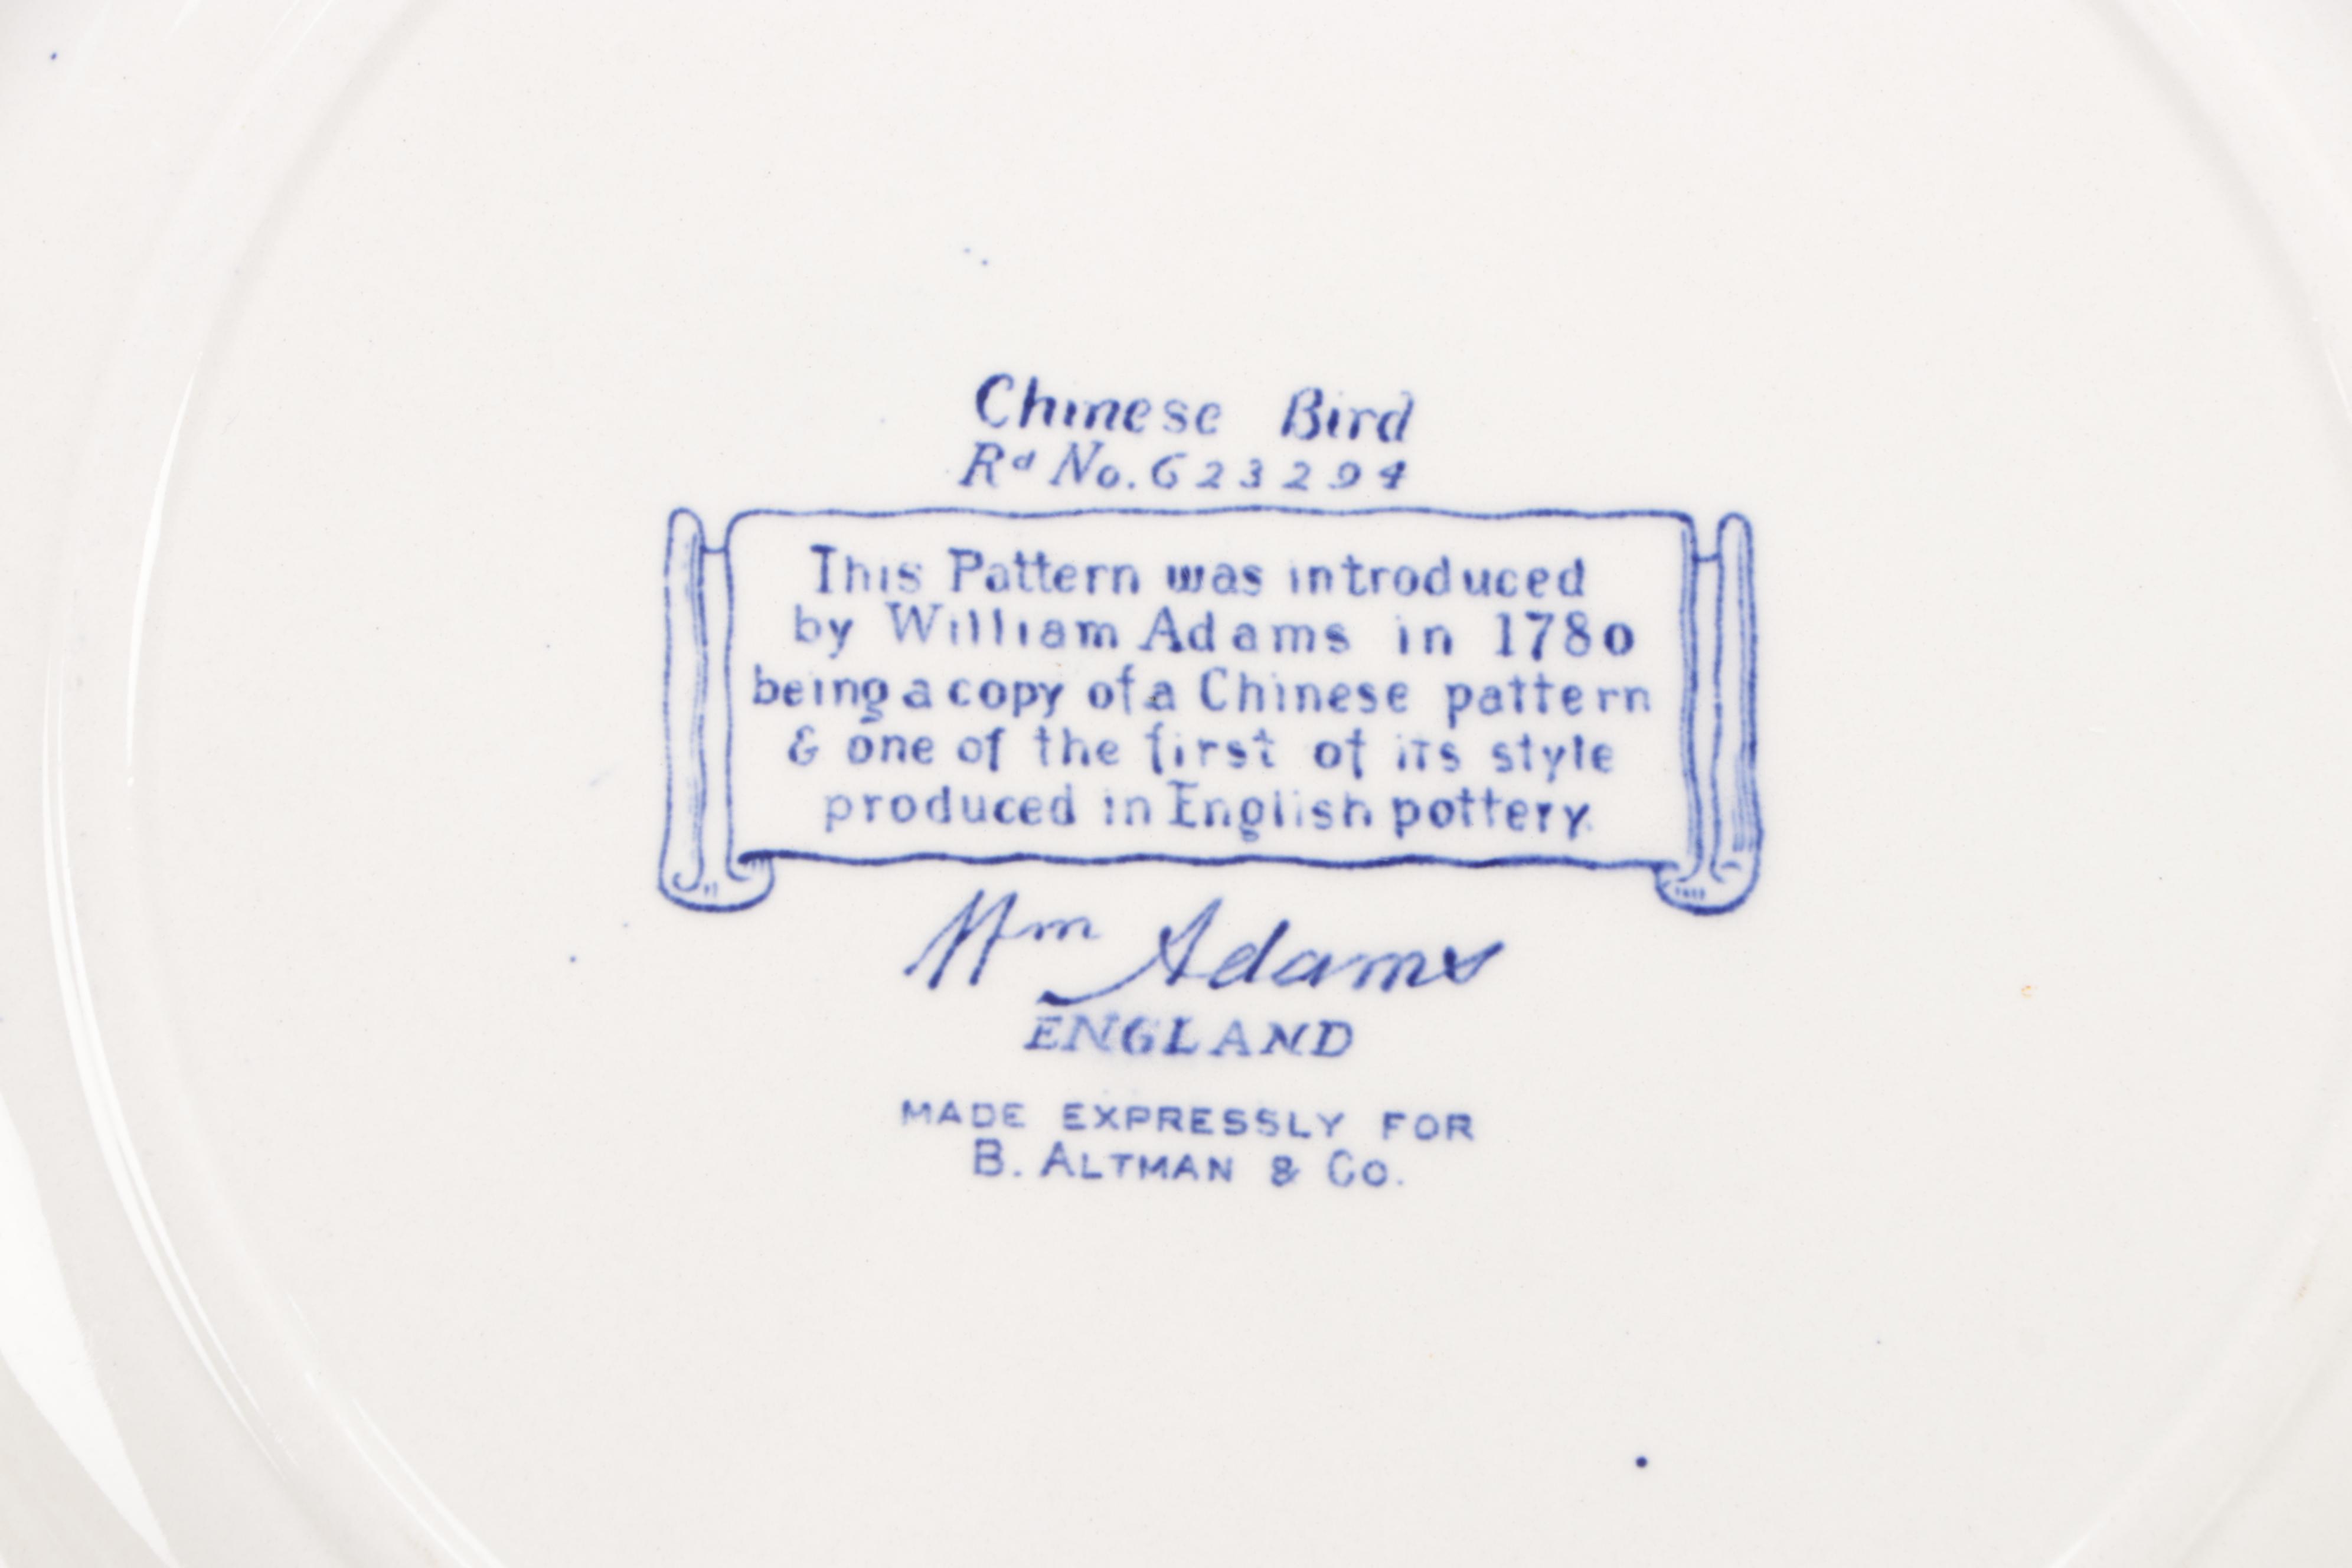 Chinese Bird
Rd No. 623294
This Pattern was introduced
by William Adams in 1780
being a copy of a Chinese pattern
& one of the first of its style
produced in English pottery.
Wm Adams
ENGLAND
MADE EXPRESSLY FOR
B. ALTMAN & CO.